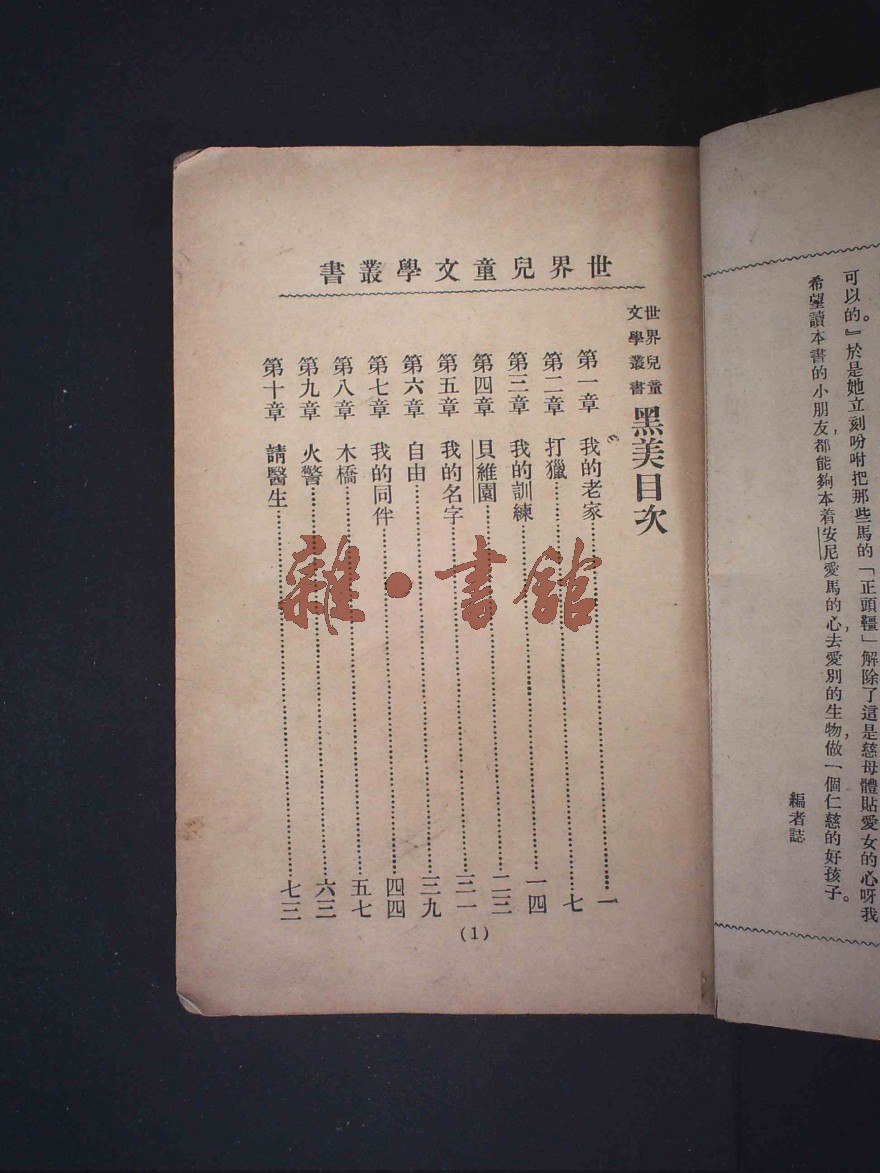 可以的』於是她立刻吩咐把那些馬的「正頭韁」解除了這是慈母體貼愛女的心呀我
希望讀本書的小朋友,都能夠本着安尼愛馬的心,去愛別的生物,做一個仁慈的好孩子。
編者誌
世界兒童文學叢書
世界兒童
文學叢書
黑美目次
第一章 我的老家…………一
第二章 打獵…………七
第三章 我的訓練…………一四
第四章 貝維園…………二三
第五章 我的名字…………三一
第六章 自由…………三九
第七章 我的同伴…………四四
第八章 木橋…………五七
第九章 火警…………六三
第十章 請醫生…………七三
(1)
雜·書館